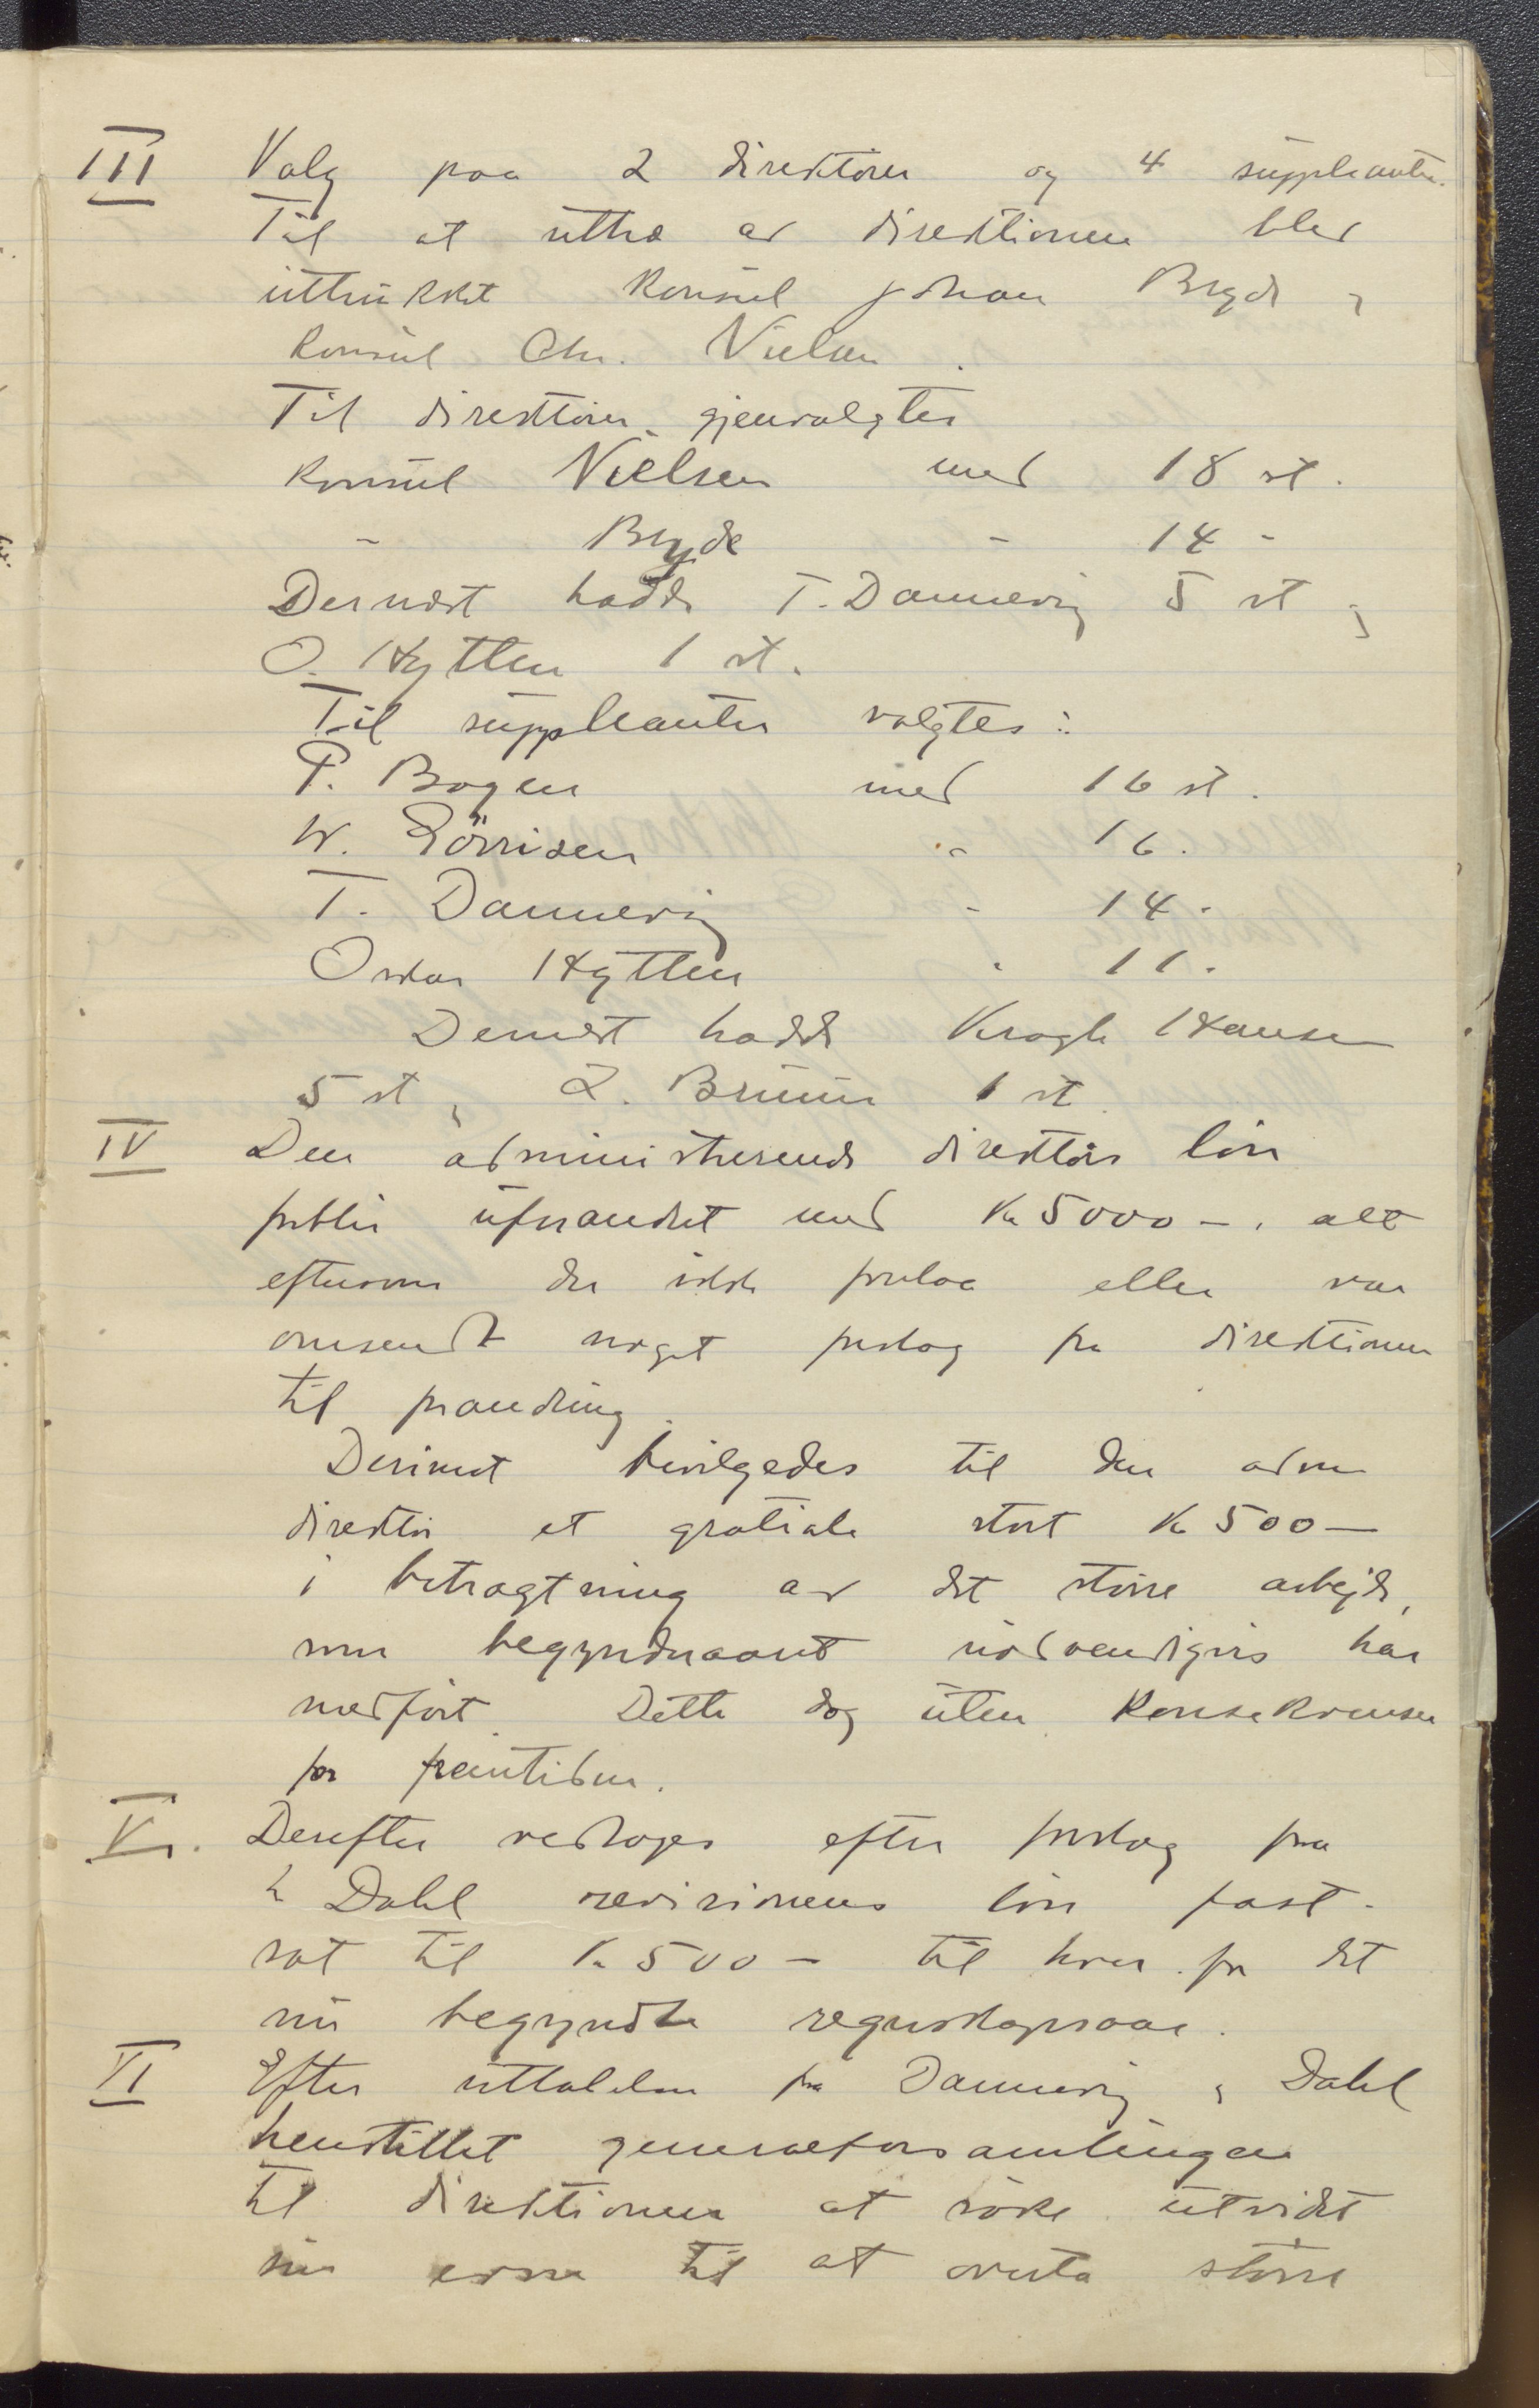 III Valg paa 2 direktører og 4 suppleanter.
Til at uttræ av direktionen blev
uttrukket konsul Johan Bryde og
konsul Chr. Nielsen.
Til direktører gjenvalgtes
konsul Nielsen med 18 st.
- Bryde - 14 -
Dernæst hadde T. Dannevig 5 st og
O. Hytten 1 st.
Til suppleanter valgtes:
P. Bogen med 16 st.
W. Sörrisen - 16.
T. Dannevig - 14 -
Oskar Hytten - 11 -
Dernæst hadde Krogh Hansen
5 st, L. Bruun 1 st.
IV Den administrerende direktørs løn
forblir uforandret med Kr 5000 -, alt
eftersom der ikke forelaa eller var
omsendt noget forslag fra direktionen
til forandring.
Derimot bevilgedes til den adm
direktør et gratiale stort Kr 500 —
i betragtning av det større arbejde,
som begynderaaret nødvendigvis har
medført. Dette dog uten konsekvenser
for fremtiden.
V. Derefter vedtoges efter forslag fra
hr Dahl revisionens løn fast-
sat til Kr 500 - til hver for det
nu begyndte regnskapsaar.
VI Efter uttalelser fra Dannevig og Dahl
henstillet generalforsamlingen
til direktionen at søke utvidet
sin evne til at overta større